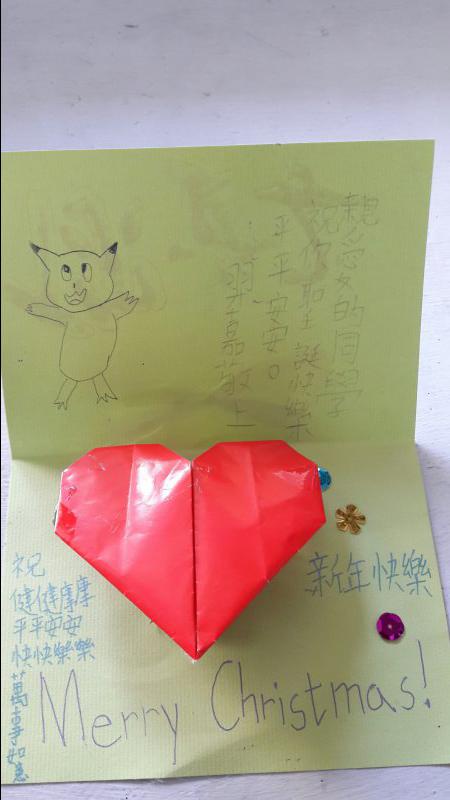 親愛的同學
祝你聖誕快樂
平平安安。
羿嘉敬上
祝
健健康康
平平安安
快快樂樂
萬事如意
新年快樂
Merry Christmas!